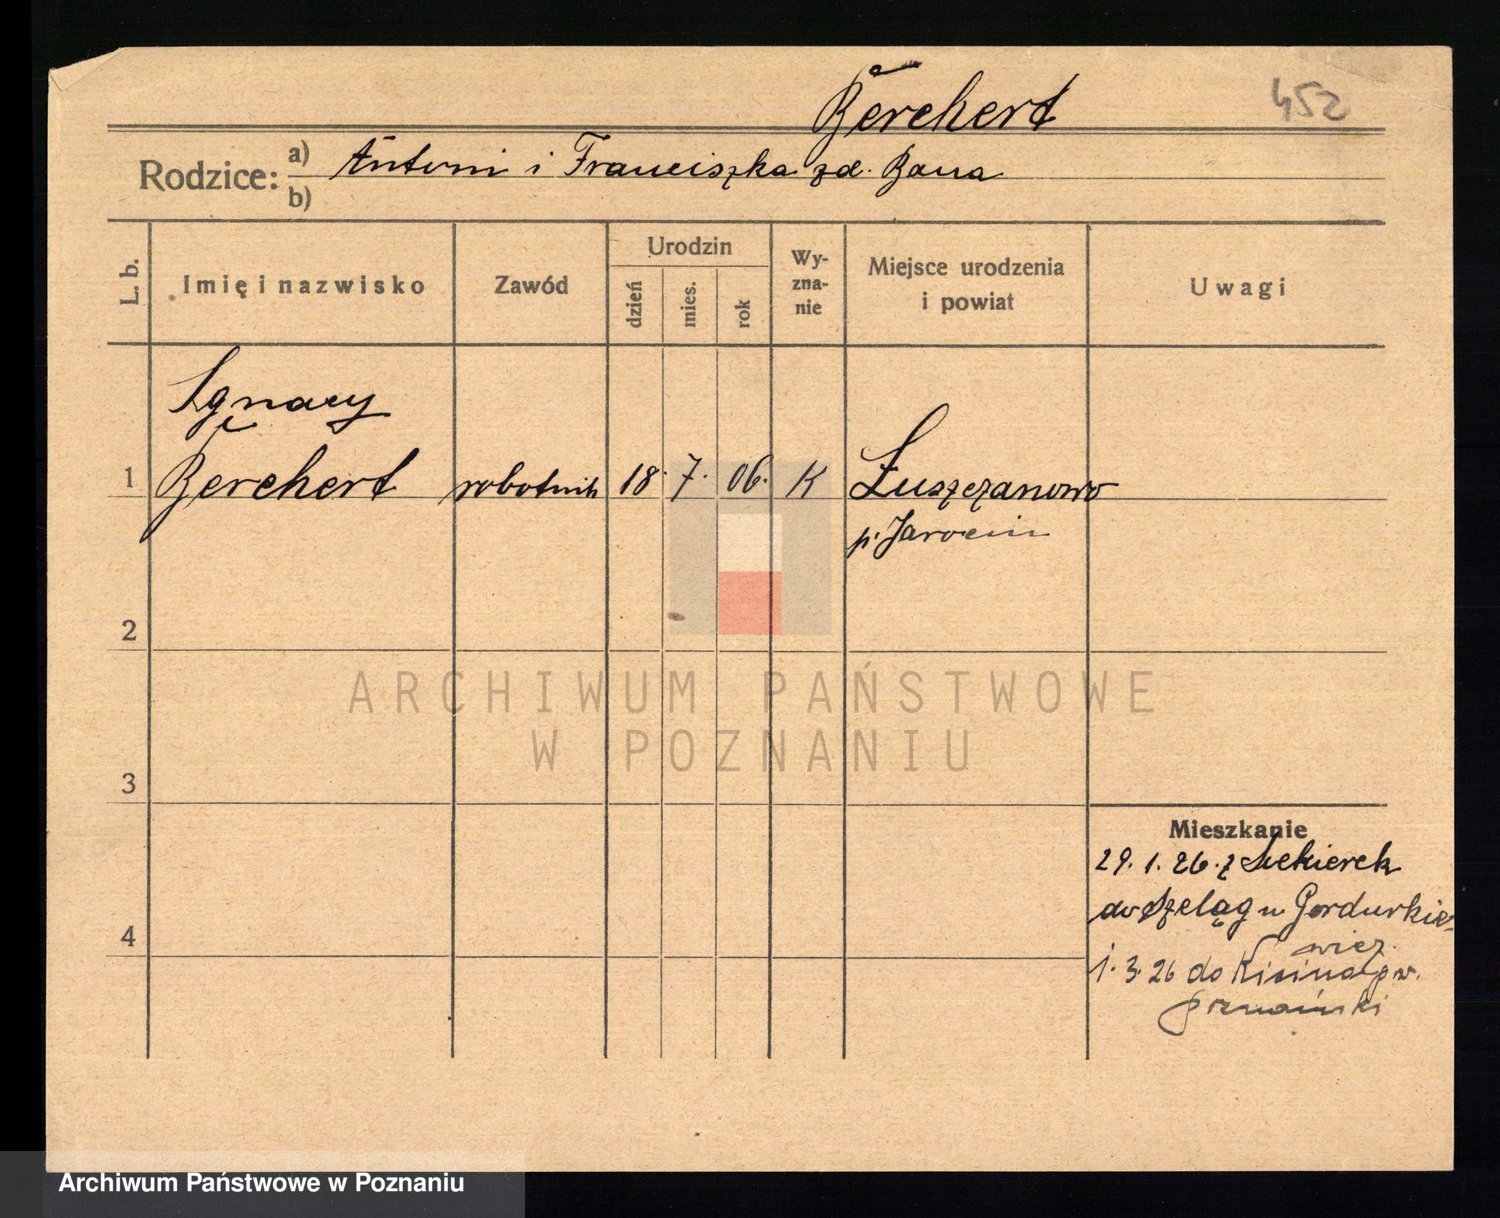 Berchert
452
Rodzice: a) Antoni i Franciszka zd. Bana
b)
L. b.
Imię i nazwisko
Zawód
Urodzin
dzień
mies.
rok
Wy-
zna-
nie
Miejsce urodzenia
i powiat
Uwagi
Ignacy
1 Berchert robotnik 18. 7. 06. K Łuszczanowo
p. Jarocin
2
ARCHIWUM PAŃSTWOWE
W POZNANIU
3
Mieszkanie
29. 1. 26. z
do Szeląg u Gordurkie-
4
wicz.
1. 3. 26 do
poznański
Archiwum Państwowe w Poznaniu